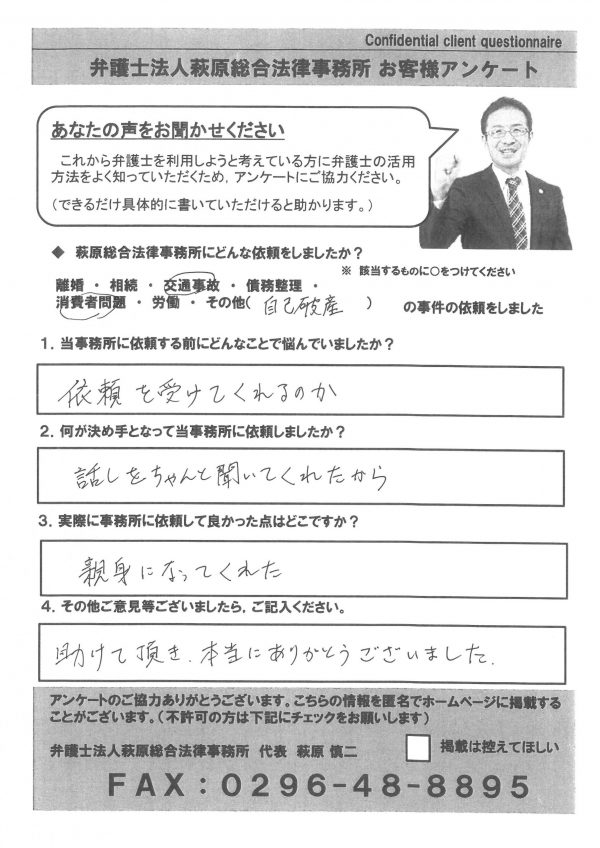 Confidential client questionnaire
弁護士法人萩原総合法律事務所 お客様アンケート
あなたの声をお聞かせください
これから弁護士を利用しようと考えている方に弁護士の活用
方法をよく知っていただくため,アンケートにご協力ください。
(できるだけ具体的に書いていただけると助かります。)
◆ 萩原総合法律事務所にどんな依頼をしましたか?
※ 該当するものに○をつけてください
離婚 ・ 相続 ・ 交通事故 ・ 債務整理 ・
消費者問題 ・ 労働 ・ その他( 自己破産 ) の事件の依頼をしました
1.当事務所に依頼する前にどんなことで悩んでいましたか?
依頼を受けてくれるのか
2.何が決め手となって当事務所に依頼しましたか?
話しをちゃんと聞いてくれたから
3.実際に事務所に依頼して良かった点はどこですか?
親身になってくれた
4.その他ご意見等ございましたら,ご記入ください。
助けて頂き、本当にありがとうございました.
アンケートのご協力ありがとうございます。こちらの情報を匿名でホームページに掲載する
ことがございます。(不許可の方は下記にチェックをお願いします)
弁護士法人萩原総合法律事務所 代表 萩原 慎二
掲載は控えてほしい
FAX:0296-48-8895